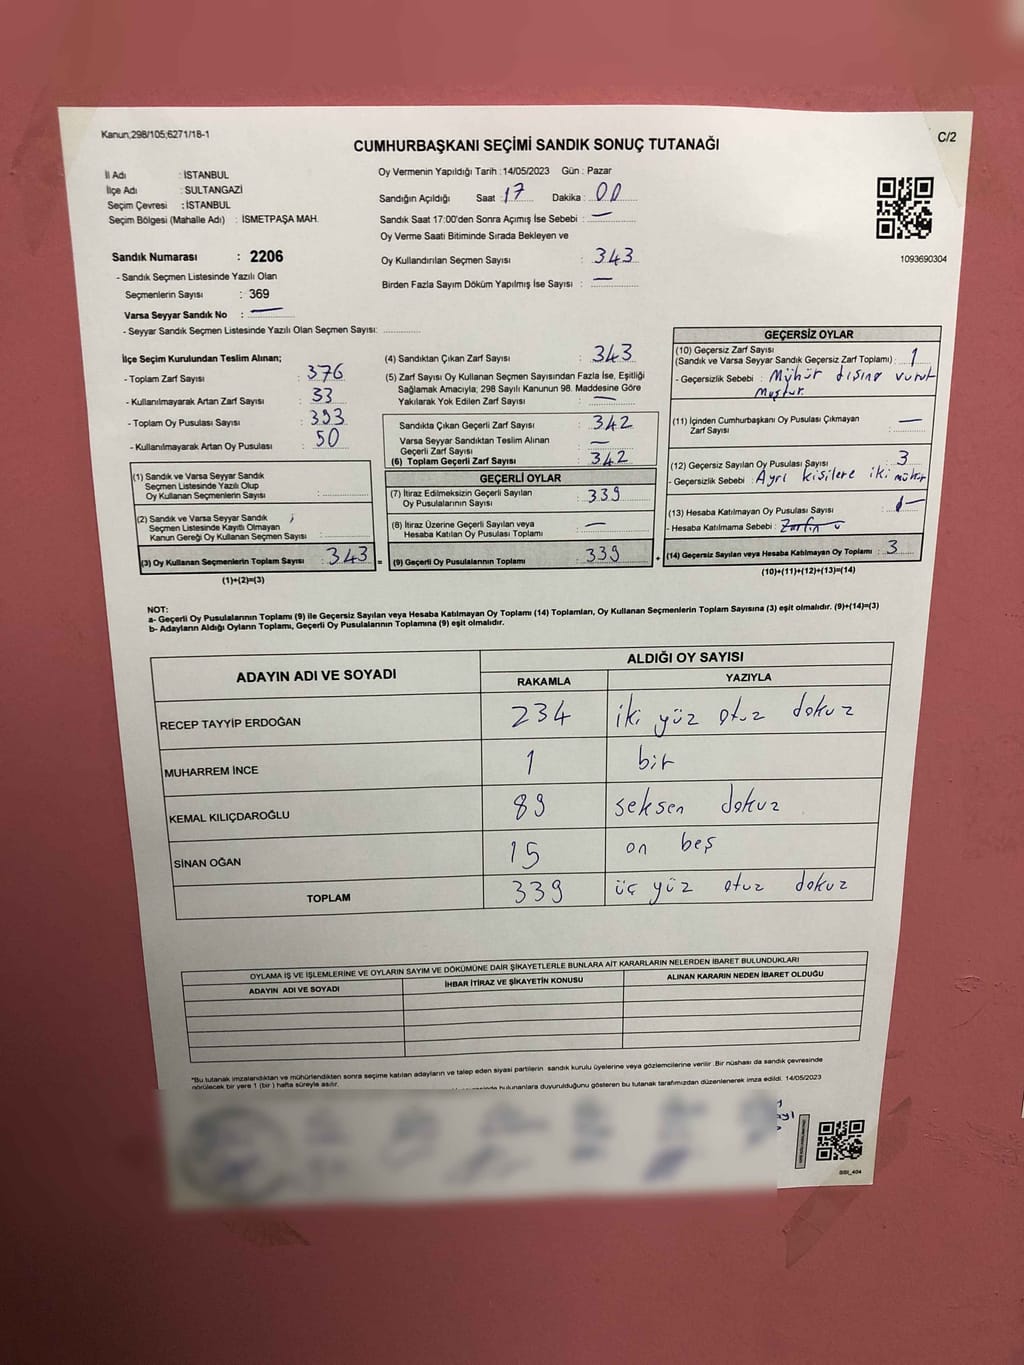 Kanun;298/105;6271/18-1
C/2
CUMHURBAŞKANI SEÇİMİ SANDIK SONUÇ TUTANAĞI
İl Adı : İSTANBUL
İlçe Adı : SULTANGAZİ
Seçim Çevresi : İSTANBUL
Seçim Bölgesi (Mahalle Adı) : İSMETPAŞA MAH.
Sandık Numarası : 2206
- Sandık Seçmen Listesinde Yazılı Olan
Seçmenlerin Sayısı : 369
Varsa Seyyar Sandık No : —
- Seyyar Sandık Seçmen Listesinde Yazılı Olan Seçmen Sayısı:
Oy Vermenin Yapıldığı Tarih : 14/05/2023 Gün : Pazar
Sandığın Açıldığı Saat : 17 Dakika : 00
Sandık Saat 17:00'den Sonra Açımış İse Sebebi : —
Oy Verme Saati Bitiminde Sırada Bekleyen ve
Oy Kullandırılan Seçmen Sayısı : 343
Birden Fazla Sayım Döküm Yapılmış İse Sayısı : —
1093690304
İlçe Seçim Kurulundan Teslim Alınan;
- Toplam Zarf Sayısı : 376
- Kullanılmayarak Artan Zarf Sayısı : 33
- Toplam Oy Pusulası Sayısı : 393
- Kullanılmayarak Artan Oy Pusulası : 50
(1) Sandık ve Varsa Seyyar Sandık
Seçmen Listesinde Yazılı Olup
Oy Kullanan Seçmenlerin Sayısı :
(2) Sandık ve Varsa Seyyar Sandık
Seçmen Listesinde Kayıtlı Olmayan
Kanun Gereği Oy Kullanan Seçmen Sayısı :
(3) Oy Kullanan Seçmenlerin Toplam Sayısı : 343 =
(1)+(2)=(3)
(4) Sandıktan Çıkan Zarf Sayısı : 343
(5) Zarf Sayısı Oy Kullanan Seçmen Sayısından Fazla İse, Eşitliği
Sağlamak Amacıyla; 298 Sayılı Kanunun 98. Maddesine Göre
Yakılarak Yok Edilen Zarf Sayısı : —
Sandıkta Çıkan Geçerli Zarf Sayısı : 342
Varsa Seyyar Sandıktan Teslim Alınan
Geçerli Zarf Sayısı : —
(6) Toplam Geçerli Zarf Sayısı : 342
GEÇERLİ OYLAR
(7) İtiraz Edilmeksizin Geçerli Sayılan
Oy Pusulalarının Sayısı : 339
(8) İtiraz Üzerine Geçerli Sayılan veya
Hesaba Katılan Oy Pusulası Toplamı : —
(9) Geçerli Oy Pusulalarının Toplamı : 339 +
GEÇERSİZ OYLAR
(10) Geçersiz Zarf Sayısı
(Sandık ve Varsa Seyyar Sandık Geçersiz Zarf Toplamı) : 1
- Geçersizlik Sebebi : Mühür dışına vurul
muştur.
(11) İçinden Cumhurbaşkanı Oy Pusulası Çıkmayan
Zarf Sayısı : —
(12) Geçersiz Sayılan Oy Pusulası Sayısı : 3
- Geçersizlik Sebebi : Ayrı kişilere iki mühür
(13) Hesaba Katılmayan Oy Pusulası Sayısı :
- Hesaba Katılmama Sebebi :
(14) Geçersiz Sayılan veya Hesaba Katılmayan Oy Toplamı : 3
(10)+(11)+(12)+(13)=(14)
NOT:
a- Geçerli Oy Pusulalarının Toplamı (9) ile Geçersiz Sayılan veya Hesaba Katılmayan Oy Toplamı (14) Toplamları, Oy Kullanan Seçmenlerin Toplam Sayısına (3) eşit olmalıdır. (9)+(14)=(3)
b- Adayların Aldığı Oyların Toplamı, Geçerli Oy Pusulalarının Toplamına (9) eşit olmalıdır.
ADAYIN ADI VE SOYADI ALDIĞI OY SAYISI
RAKAMLA YAZIYLA
RECEP TAYYİP ERDOĞAN 234 iki yüz otuz dokuz
MUHARREM İNCE 1 bir
KEMAL KILIÇDAROĞLU 89 seksen dokuz
SİNAN OĞAN 15 on beş
TOPLAM 339 üç yüz otuz dokuz
OYLAMA İŞ VE İŞLEMLERİNE VE OYLARIN SAYIM VE DÖKÜMÜNE DAİR ŞİKAYETLERLE BUNLARA AİT KARARLARIN NELERDEN İBARET BULUNDUKLARI
ADAYIN ADI VE SOYADI İHBAR İTİRAZ VE ŞİKAYETİN KONUSU ALINAN KARARIN NEDEN İBARET OLDUĞU
*Bu tutanak imzalandıktan ve mühürlendikten sonra seçime katılan adayların ve talep eden siyasi partilerin sandık kurulu üyelerine veya gözlemcilerine verilir .Bir nüshası da sandık çevresinde
görülecek bir yere 1 (bir ) hafta süreyle asılır.
bulunanlara duyurulduğunu gösteren bu tutanak tarafımızdan düzenlenerek imza edildi. 14/05/2023